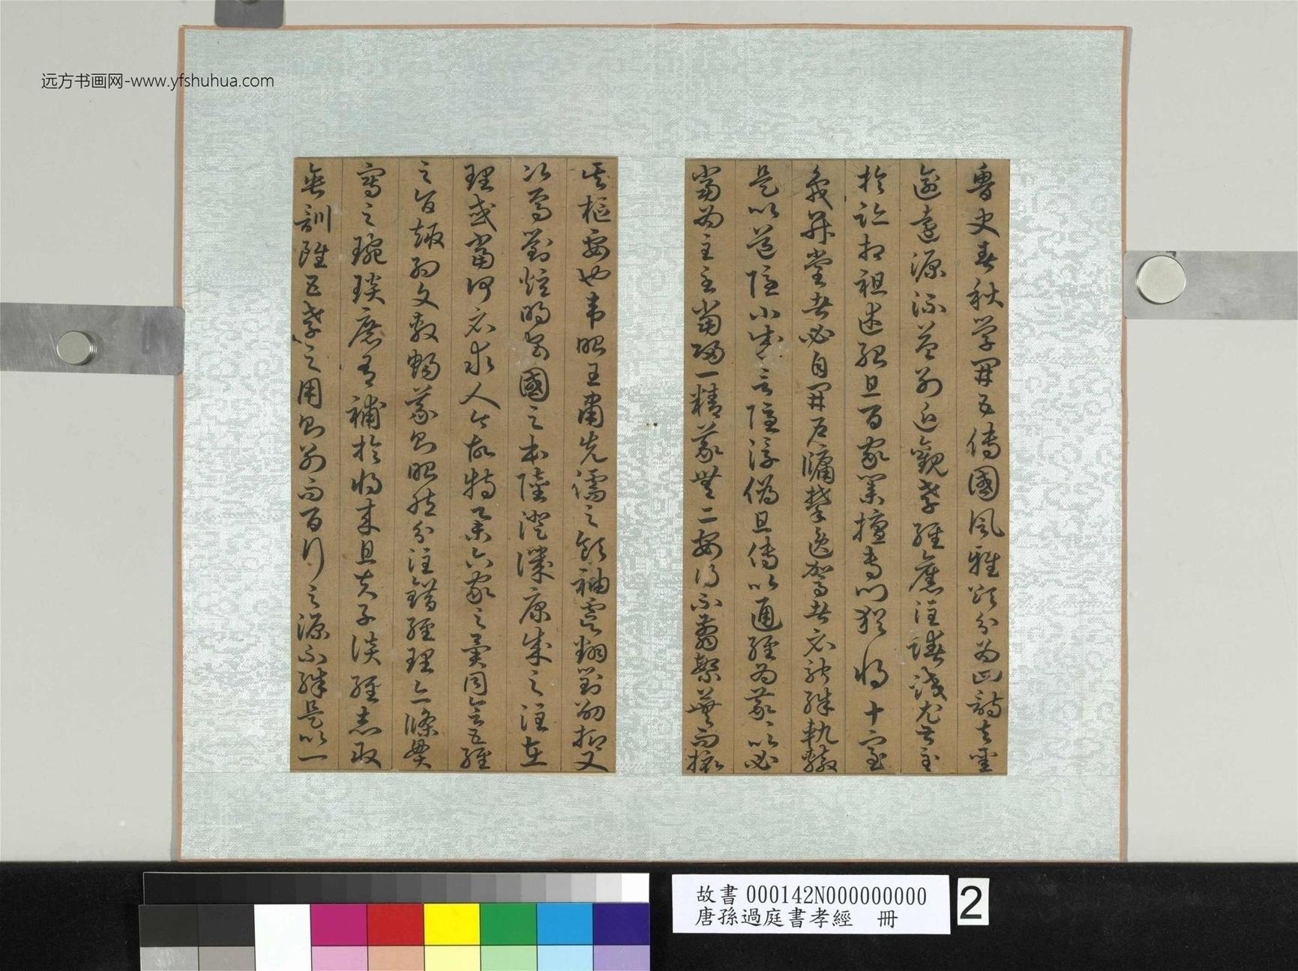 远方书画网-www.yfshuhua.com
魯史春秋學開五傳國風雅頌分為四詩去聖
逾遠源流益別近觀孝經舊注踳駁尤甚至
於跡相祖述殆且百家業擅專門猶將十室
希升堂者必自開戶牖攀逸駕者必騁殊軌轍
是以道隱小成言隱浮偽且傳以通經為義義以必
當為主至當歸一精義無二安得不翦繁蕪而撮
其樞要也韋昭王肅先儒之領袖虞翻劉劭抑又
次焉劉炫明安國之本陸澄譏康成之注在
理或當何必求人今故特舉六家之異同會五經
之旨趣約文敷暢義則昭然分注錯經理亦條貫
寫之琬琰庶有補於將來且夫子談經志取
垂訓雖五孝之用則別而百行之源不殊是以一
故書 000142N000000000
唐孫過庭書孝經 冊
2